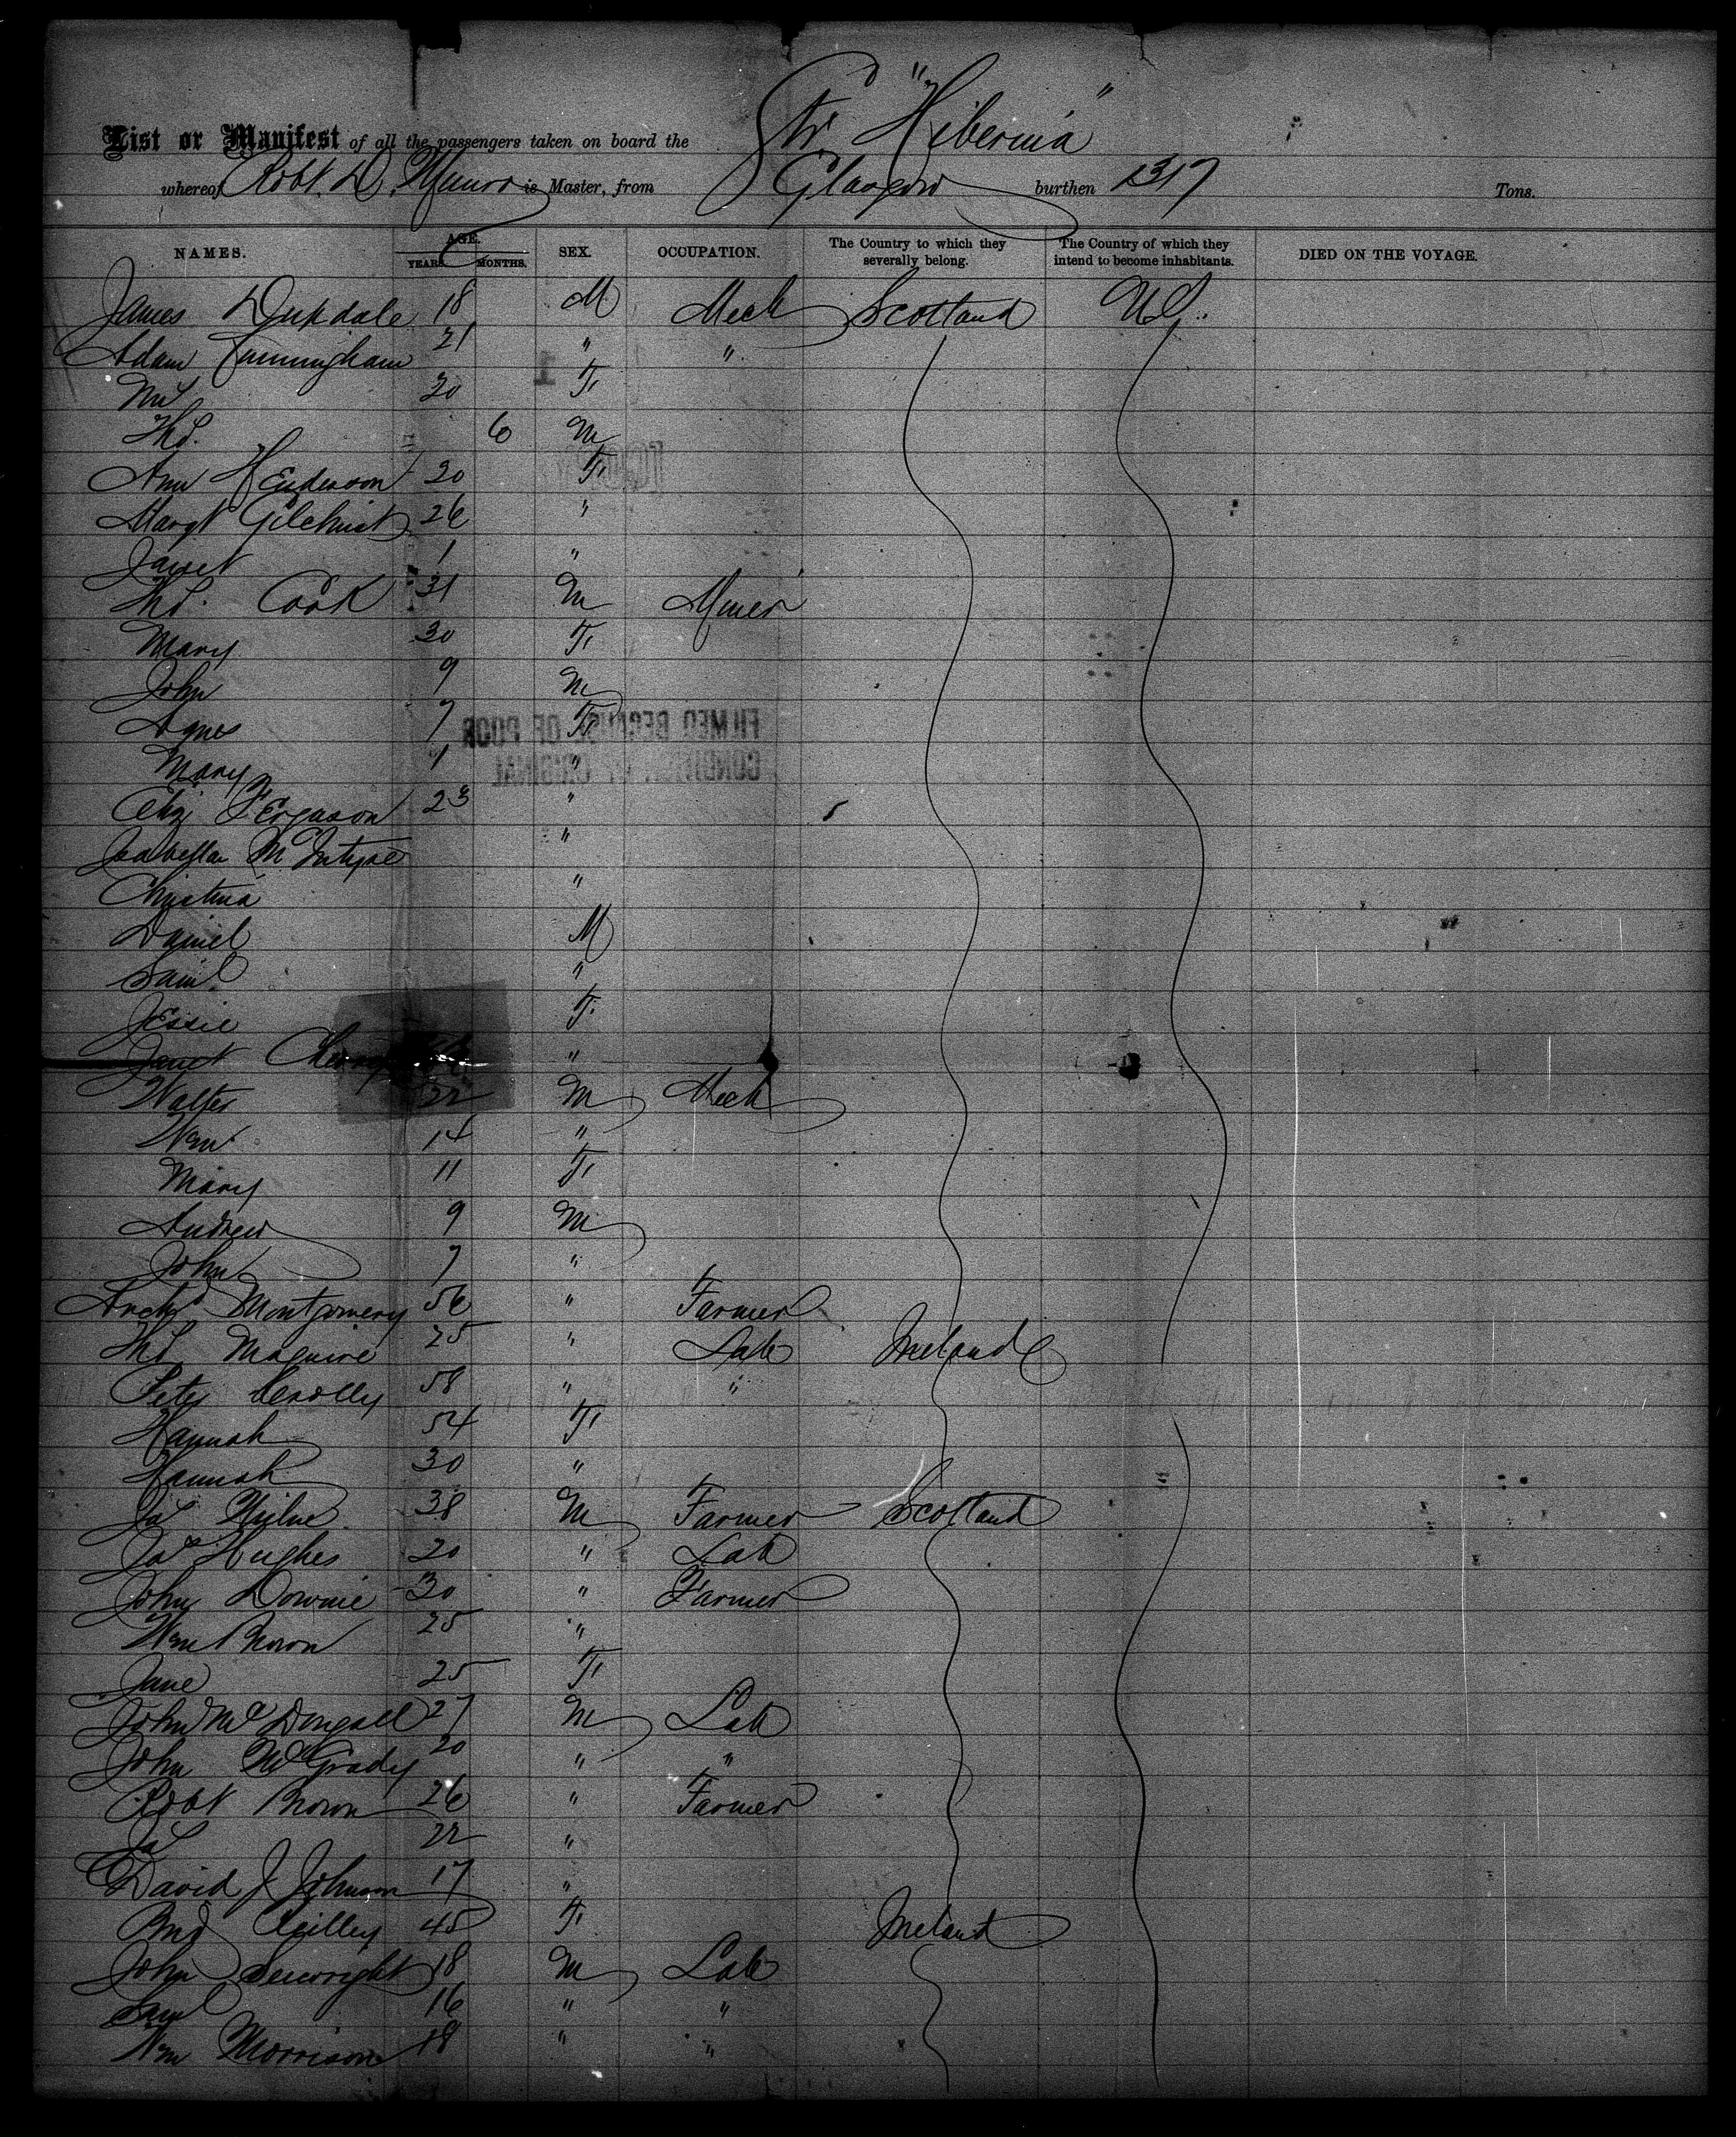 Str. "Hibernia"
List or Manifest of all the passengers taken on board the
whereof Robt. D. Munro is Master, from Glasgow burthen 1317 Tons.
NAMES. AGE. SEX. OCCUPATION. The Country to which they severally belong. The Country of which they intend to become inhabitants. DIED ON THE VOYAGE.
YEARS. MONTHS.
James 18 M Mech Scotland U.S.
Adam Cunningham 21 " "
Mrs 20 F
Thos. 6 M
Ann Henderson 20 F
Margt Gilchrist 26 "
Janet 1 "
Thos. Cook 31 M Miner
Mary 30 F
John 9 M
Agnes 7 F
FILMED BECAUSE OF POOR
CONDITION OF ORIGINAL
Mary 1 "
Eliz Ferguson 23 "
Isabella McIntyre "
Christina "
Daniel M
Saml "
Jessie F.
Janet "
Walter 22 M Mech
Wm 14 "
Mary 11 F
Andrew 9 M
John 7 "
Archd Montgomery 56 " Farmer
Thos Maguire 25 " Lab Ireland
Peter 58 " "
Hannah 54 F
Hannah 30 "
Jas Milne 38 M Farmer Scotland
Jas Hughes 20 " Lab
John Downie 30 " Farmer
Wm Brown 25 "
Jane 25 F
John McDougall 27 M Lab
John McGrady 20 " "
Robt Brown 26 " Farmer
Jas 22 "
David J Johnson 17 "
Brid Reilley 45 F Ireland
John Seewright 18 M Lab
Saml 16 " "
Wm Morrison 18 " "